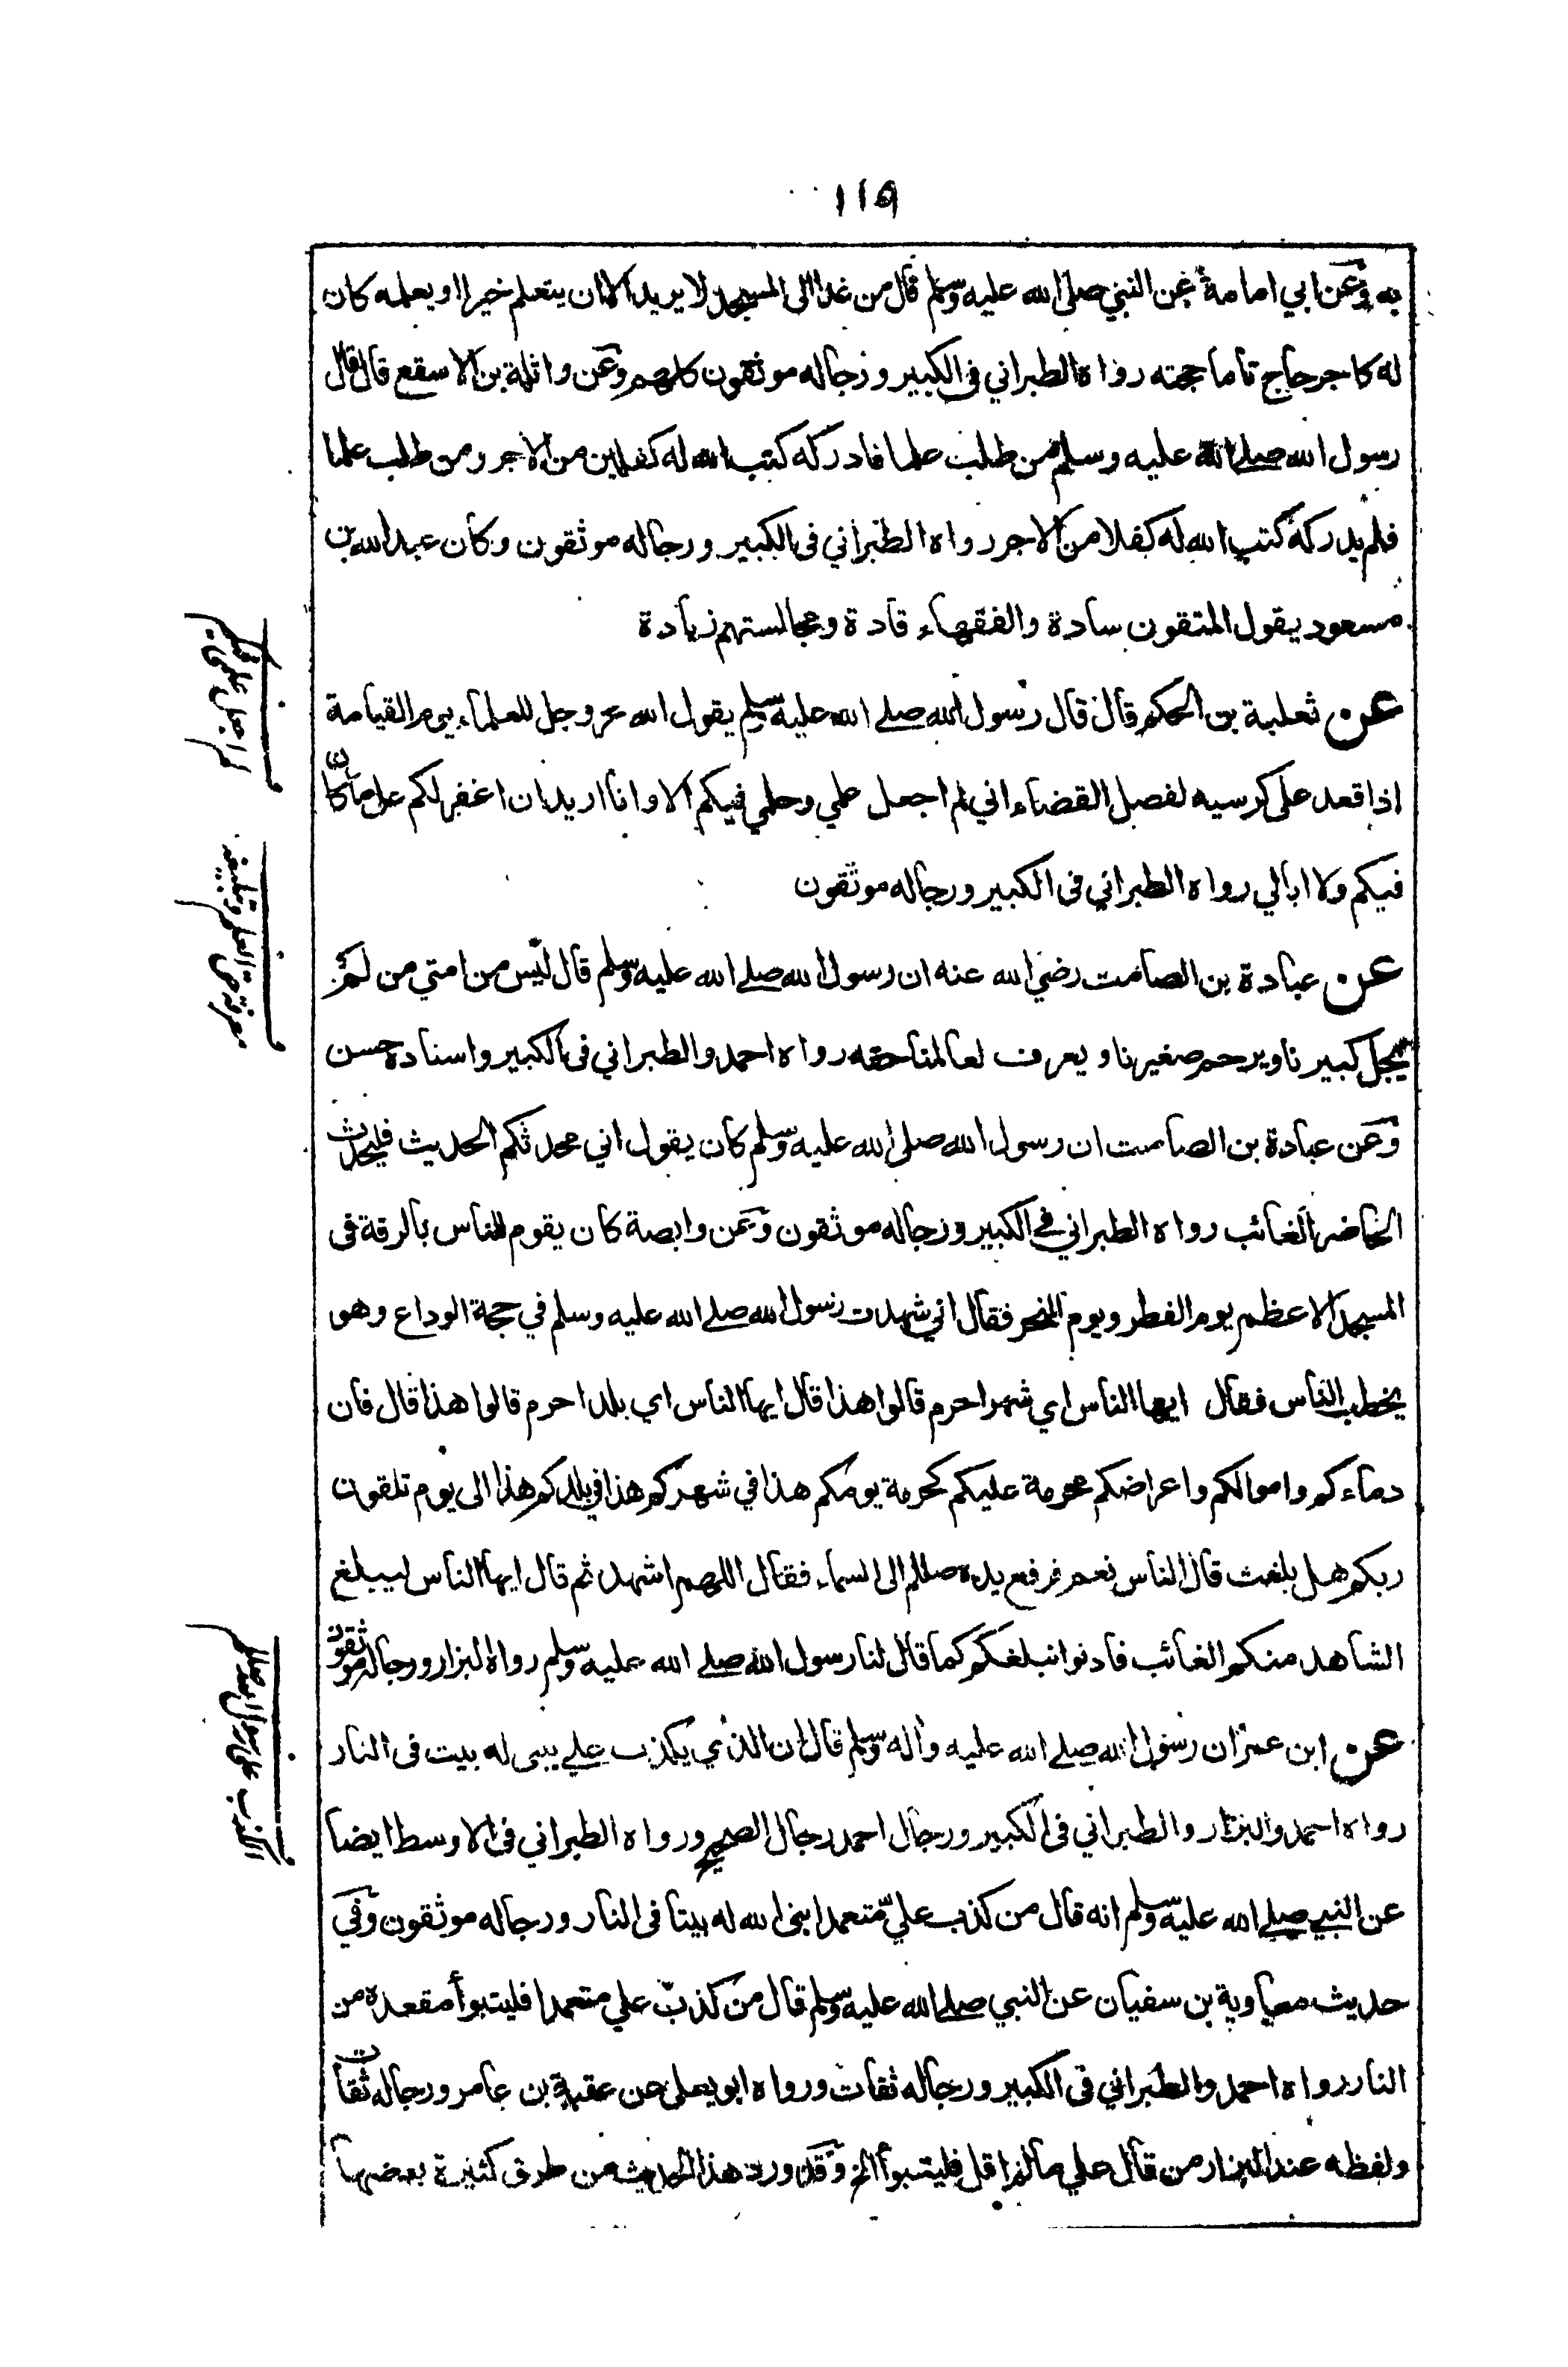 ١١٩
به وعن ابي امامة عن النبي صلى الله عليه وسلم قال من غدا الى المسجد لا يريد الا ان يتعلم خيرا او يعلمه كان
له كاجر حاج تاما حجته رواه الطبراني فى الكبير ورجاله موثقون كلهم وعن واثلة بن الاسقع قال قال
رسول الله صلے الله عليه وسلم من طلب علما فادركه كتب الله له كفلين من الاجر ومن طلب علما
فلم يدركه كتب الله له كفلا من الاجر رواه الطبراني فى الكبير ورجاله موثقون وكان عبد الله بن
مسعود يقول المتقون سادة والفقهاء قادة ومجالستهم زيادة
عن ثعلبة بن الحكم قال قال رسول الله صلے الله عليه وسلم يقول الله عز وجل للعلماء يوم القيامة
اذا قعد على كرسيه لفصل القضاء اني لم اجعل علمي وحلمي فيكم الا وانا اريد ان اغفر لكم على ما كان
فيكم ولا ابالي رواه الطبراني فى الكبير ورجاله موثقون
عن عبادة بن الصامت رضي الله عنه ان رسول الله صلے الله عليه وسلم قال ليس من امتي من لم
يجل كبيرنا ويرحم صغيرنا ويعرف لعالمنا حقه رواه احمد والطبراني فى الكبير واسناده حسن
وعن عبادة بن الصامت ان رسول الله صلى الله عليه وسلم كان يقول اني محدثكم الحديث فليحدث
الحاضر الغائب رواه الطبراني في الكبير ورجاله موثقون وعن وابصة كان يقوم للناس بالرقة فى
المسجد الاعظم يوم الفطر ويوم النحر فقال اني شهدت رسول الله صلے الله عليه وسلم في حجة الوداع وهو
يخطب الناس فقال ايها الناس اي شهر احرم قالوا هذا قال ايها الناس اي بلد احرم قالوا هذا قال فان
دماءكم واموالكم واعراضكم محرمة عليكم كحرمة يومكم هذا في شهركم هذا في بلدكم هذا الى يوم تلقون
ربكم هل بلغت قال الناس نعم فرفع يديه صللم الى السماء فقال اللهم اشهد ثم قال ايها الناس ليبلغ
الشاهد منكم الغائب فادنوا نبلغكم كما قال لنا رسول الله صلے الله عليه وسلم رواه البزار ورجاله موثقون
عن ابن عمر ان رسول الله صلے الله عليه واله وسلم قال ان الذي يكذب علے يبنى له بيت فى النار
رواه احمد والبزار والطبراني فى الكبير ورجال احمد رجال الصحيح ورواه الطبراني فى الاوسط ايضا
عن النبي صلے الله عليه وسلم انه قال من كذب عليّ متعمدا بنى الله له بيتا فى النار ورجاله موثقون وفي
حديث معاوية بن سفيان عن النبي صلے الله عليه وسلم قال من كذب علي متعمدا فليتبوأ مقعده من
النار رواه احمد والطبراني فى الكبير ورجاله ثقات ورواه ابو يعلى عن عقبة بن عامر ورجاله ثقات
ولفظه عند البزار من قال علي ما لم اقل فليتبوأ الخ وقد ورد هذا الحديث من طرق كثيرة بعضها